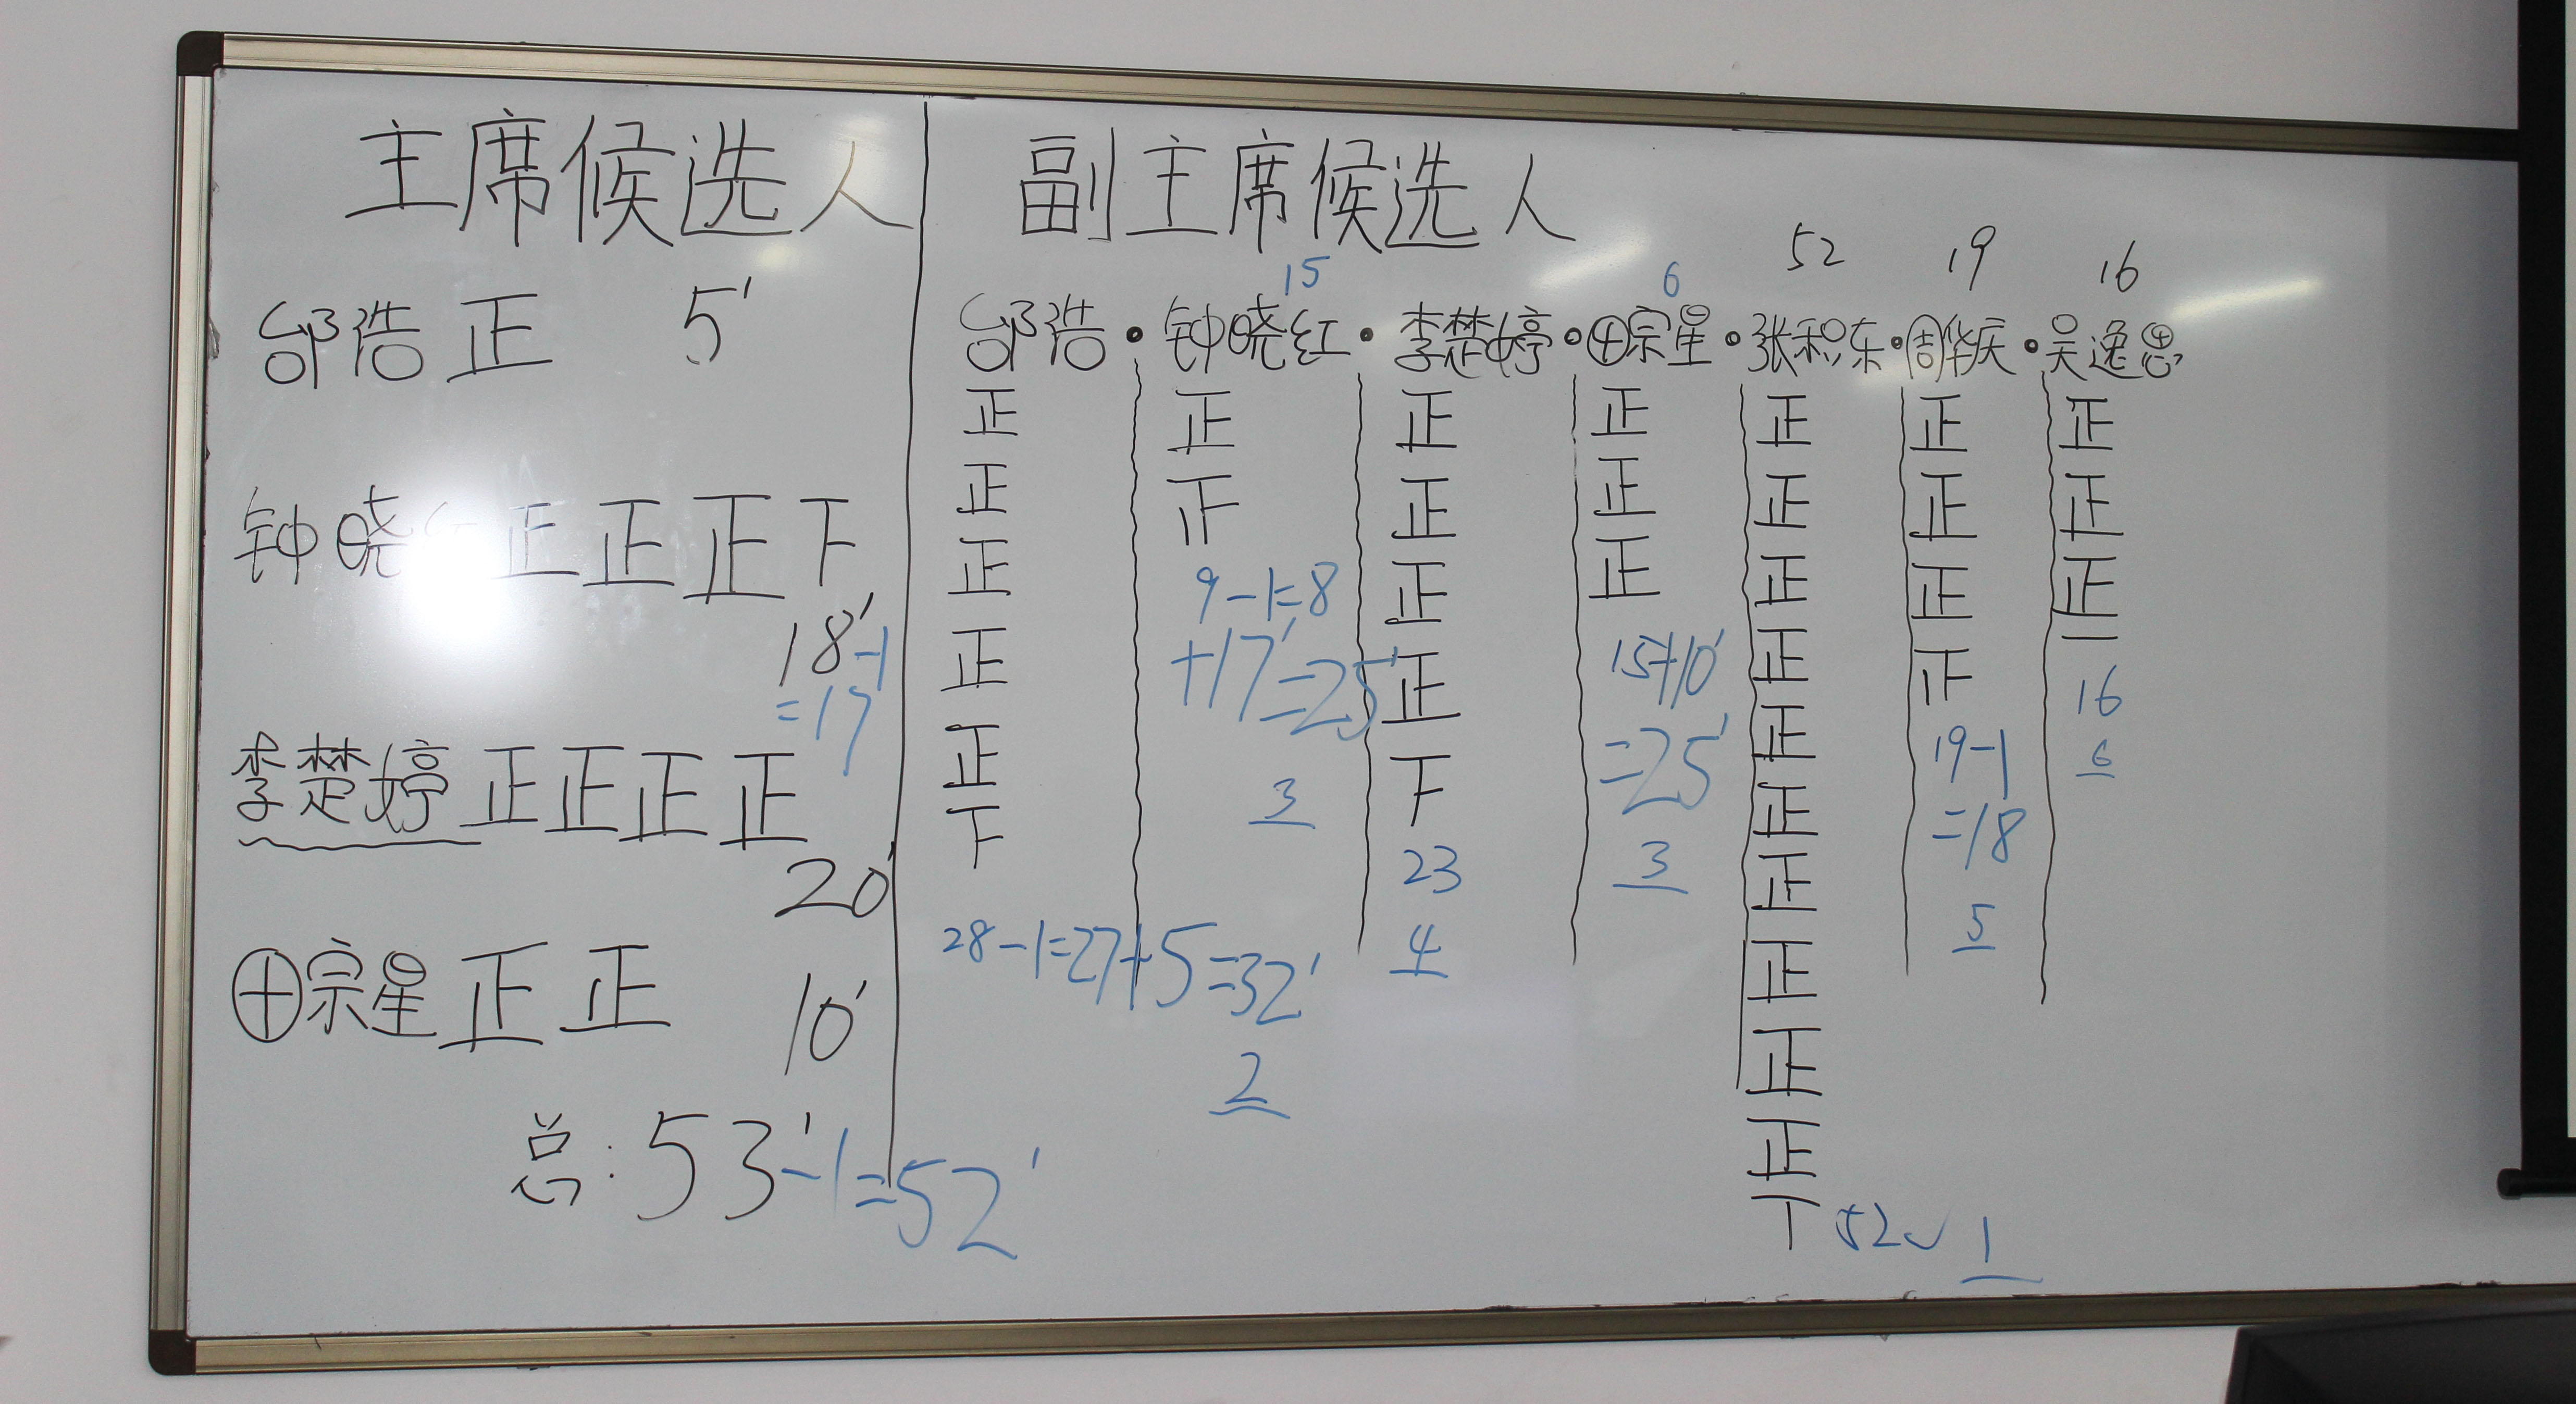 主席候选人
邰浩 正 5'
钟晓 正正正下
18'-1
=17
李楚婷 正正正正
20'
田宗星 正正 10'
总:53'-1=52'
副主席候选人
15 6 52 19 16
邰浩·钟晓红·李楚婷·田宗星·张积东·周华庆·吴逸思
正 正 正 正 正 正 正
正 正 正 正 正 正
正 正 正 正 正 正
正 正 正
正 正
下 下 正
正
正
正
正
丅
9-1=8
+17'=25'
3
28-1=27+5=32'
2
23
4
15+10'
=25'
3
52✓ 1
19-1
=18
5
一
16
6